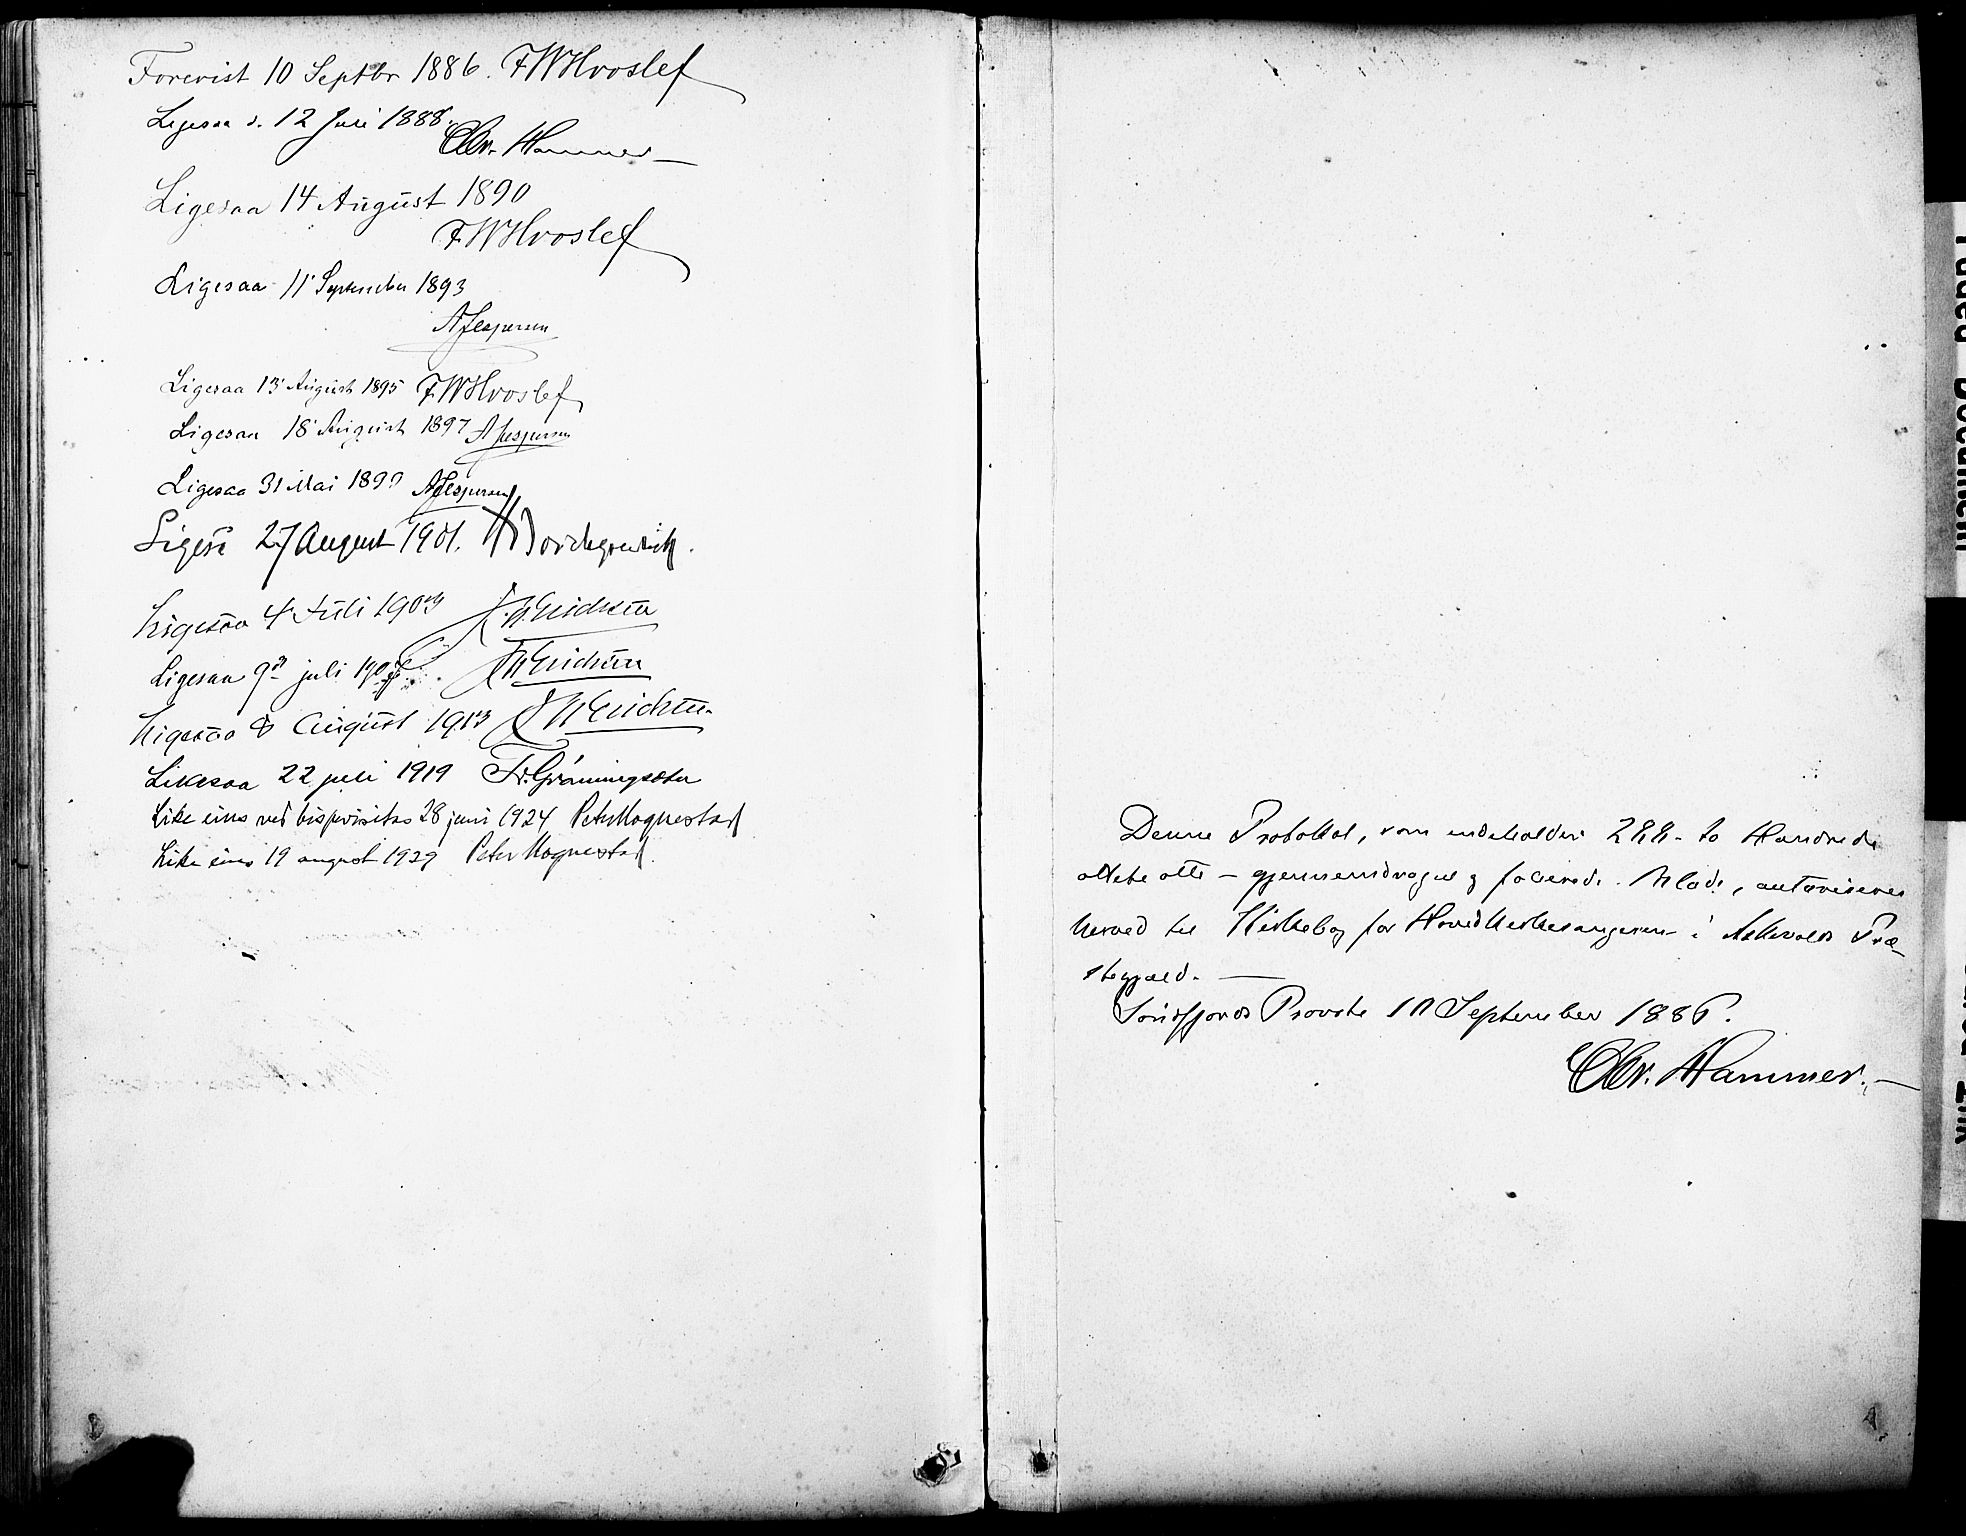 Forevist 10 Septbr 1886. FWHvoslef
Ligesaa d. 12 Juli 1888.
Chr. Hammer
Ligesaa 14 August 1890
FWHvoslef
Ligesaa 11 September 1893
AJespersen
Ligesaa 13 August 1895 FWHvoslef
Ligesaa 18 August 1897 AJespersen
Ligesaa 31 Mai 1899 AJespersen
Ligeså 27 August 1901.
Ligesaa 4 Juli 1903 J.W Erichsen
Ligesaa 9 juli JW Erichsen
Ligesaa 8 August 1913 JW Erichsen
Likesaa 22 juli 1919 Fr. Grønningsæter
Like eins ved bispevisitas 28 juni 1924 Peter Mognestad
Like eins 19 august 1929 Peter Mognestad.
Denne Protokol, som indeholder 288 - to Hundrede
ottete otte - gjennemdragne og folierede Blade, autoriseres
herved til Kirkebog for Hovedkirkesangeren i Askvolds Præ-
stegjæld.
Søndfjords Provsti 10 September 1886.
Chr. Hammer.
Faded Document
Ink